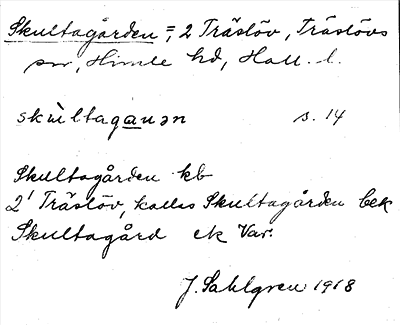 Skultagården =, 2 Träslöv, Träslövs
sn, Himle hd, Hall. l.
skùltaganən s. 14
Skultagården kb
2¹ Träslöv, kallas Skultagården bek
Skultagård ek Var.
J. Sahlgren 1918